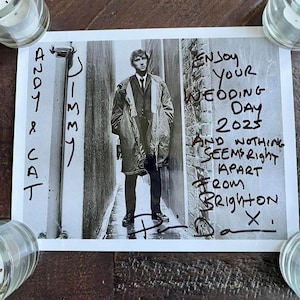 ANDY & CAT
JIMMY
ENJOY
YOUR
WEDDING
DAY
2025
AND NOTHING
SEEMS RIGHT
APART
FROM
BRIGHTON
X.